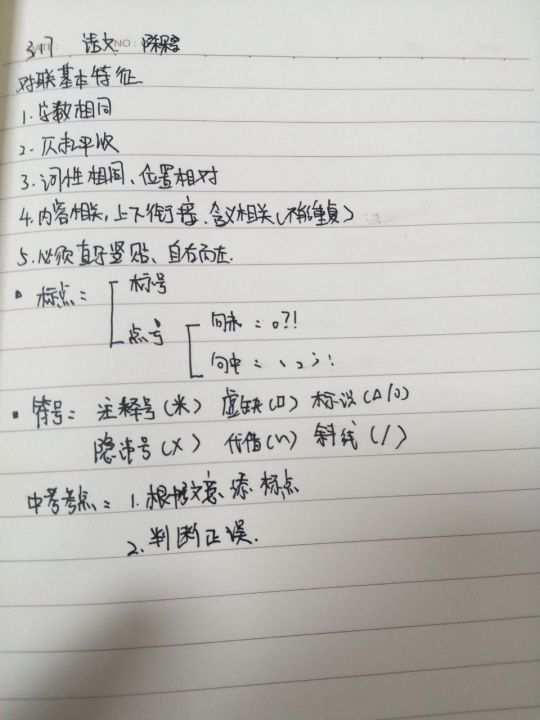 317 语文 NO:
对联基本特征
1.字数相同
2.仄起平收
3.词性相同、位置相对
4.内容相关,上下衔接、含义相关(不能重复)
5.必须直行竖贴、自右而左.
▪ 标点: 标号
点号 句末:。?!
句中:、,;:
▪ 符号: 注释号(米) 虚缺(口) 标议(△/○)
隐讳号(X) 代替(n) 斜线(/)
中考考点:1.根据文意、添标点
2.判断正误.